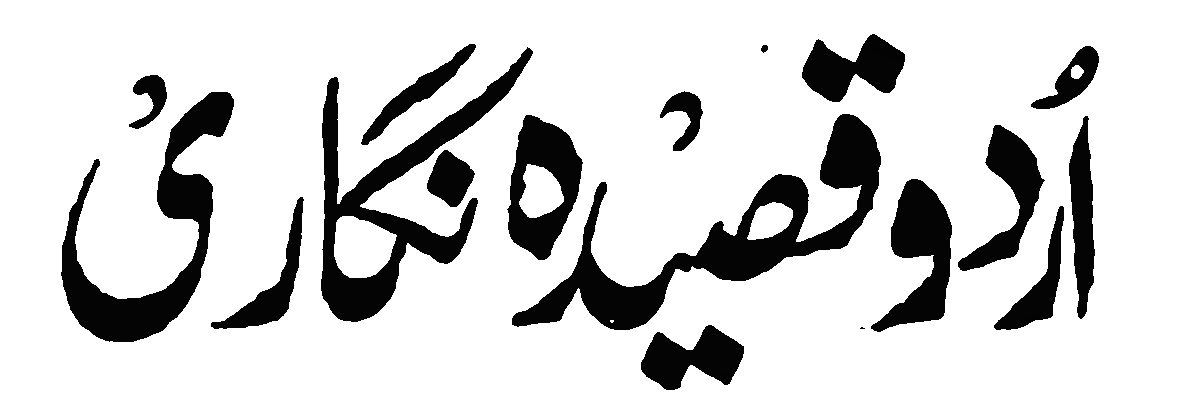 اُردو قصیدہ نگاری